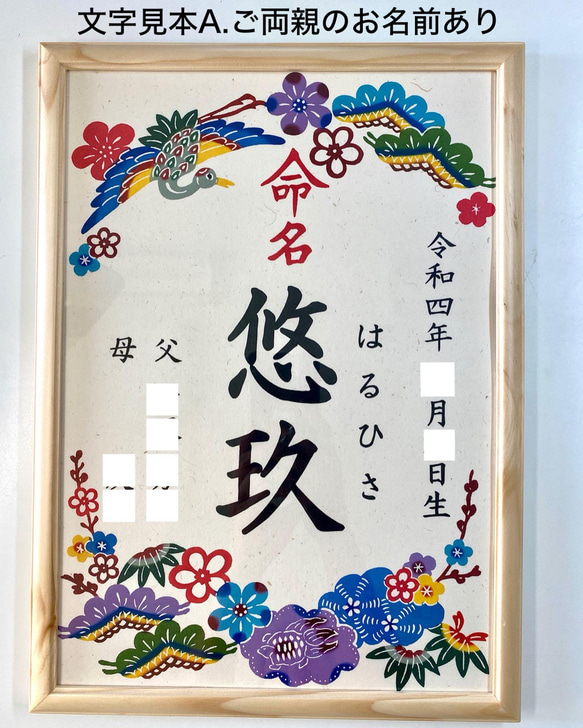 文字見本A.ご両親のお名前あり
命名
令和四年 月 日生
はるひさ
悠玖
父
母